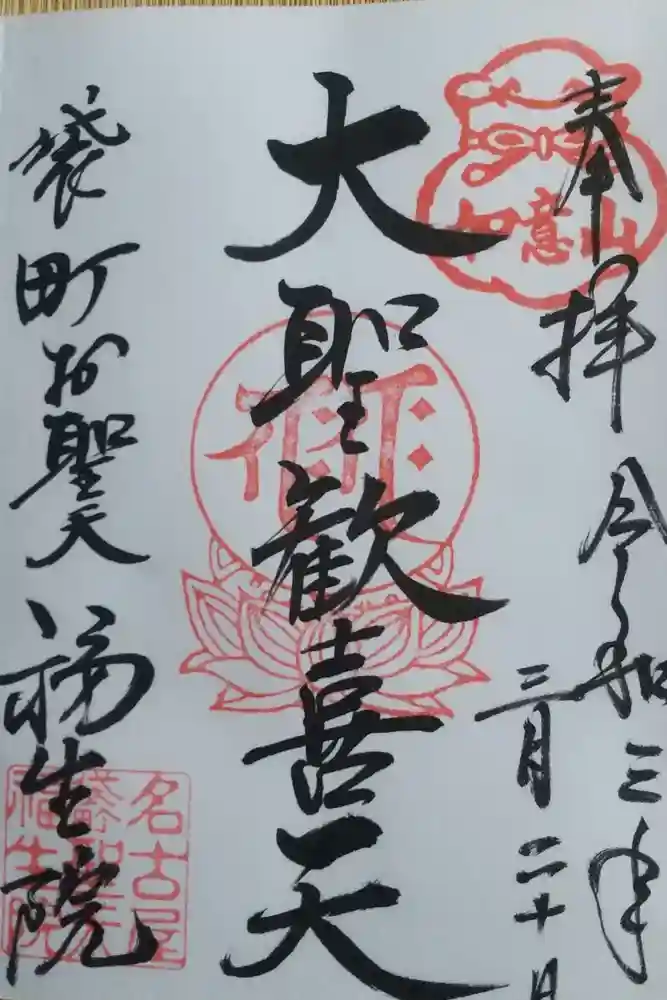 奉拝
如意山
令和三年
三月二十日
大聖歓喜天
袋町お聖天
福生院
名古屋
袋町
福生院